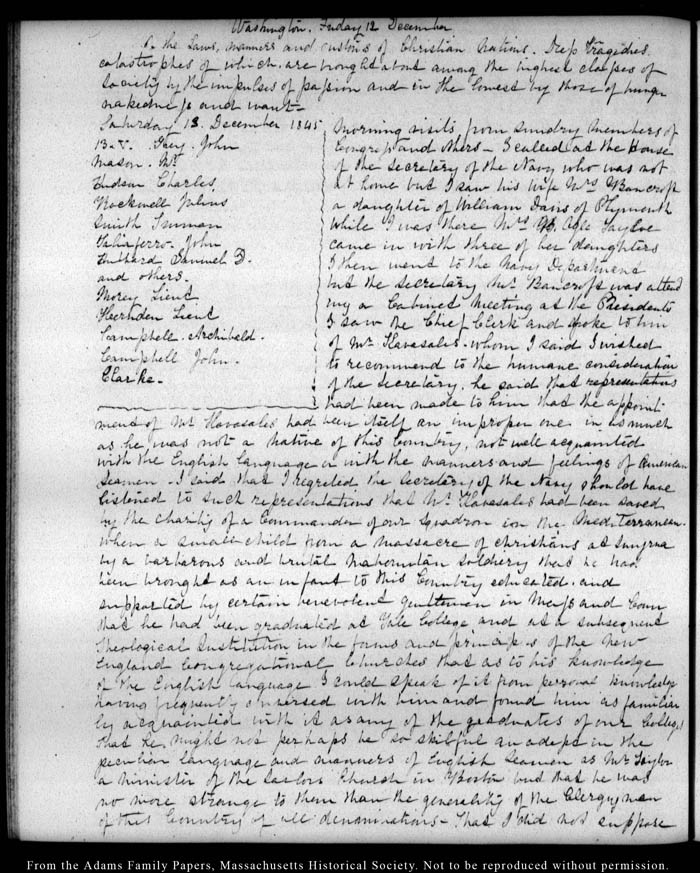 Washington, Friday 12 December
the Laws, manners and customs of Christian Nations. Deep Tragedies,
catastrophes of which are brought about among the highest classes of
Society by the impulses of passion and in the lowest by those of hunger
nakedness and want—
Saturday 13. December 1845
13. V. Gray. John
Mason. Mr
Hudson Charles
Rockwell Julius
Smith Truman
Taliaferro. John
Hubbard Samuel D.
and others.
Morey Lieut
Herndon Lieut
Campbell. Archibald.
Campbell John.
Clarke.
Morning visits, from sundry members of
Congress and others— I called at the House
of the Secretary of the Navy who was not
at home but I saw his wife Mrs Bancroft
a daughter of William Davis of Plymouth
While I was there Mrs B. Ogle Tayloe
came in with three of her daughters
I then went to the Navy Department
but the Secretary Mr. Bancroft was attend
ing a Cabinet meeting at the Presidents
I saw the Chief Clerk and spoke to him
of Mr Havasales. whom I said I wished
to recommend to the humane consideration
of the Secretary, he said that representations
had been made to him that the appoint
ment of Mr Havasales had been itself an improper one in as much
as he was not a Native of this Country, not well acquainted
with the English Language or with the manners and feelings of American
Seamen. I said that I regretted the Secretary of the Navy should have
listened to such representations that Mr Havasales had been saved
by the charity of a Commander of our Squadron in the Mediterranean.
when a small child from a massacre of christians at Smyrna
by a barbarous and brutal Mahometan soldiery that he had
been brought as an infant to this Country educated and
supported by certain benevolent gentlemen in Mass and Conn
that he had been graduated at Yale College and at a subsequent
Theological Institution in the forms and principles of the New
England Congregational Churches that as to his knowledge
of the English Language I could speak of it from personal knowledge
having frequently conversed with him and found him as familiar
ly acquainted with it as any of the graduates of our Colleges
that he might not perhaps be so skilful an adept in the
peculiar language and manners of English Seamen as Mr Taylor
a minister of the Sailors Church in Boston but that he was
no more strange to them than the generality of the Clergymen
of this Country of all denominations— That I did not suppose
From the Adams Family Papers, Massachusetts Historical Society. Not to be reproduced without permission.